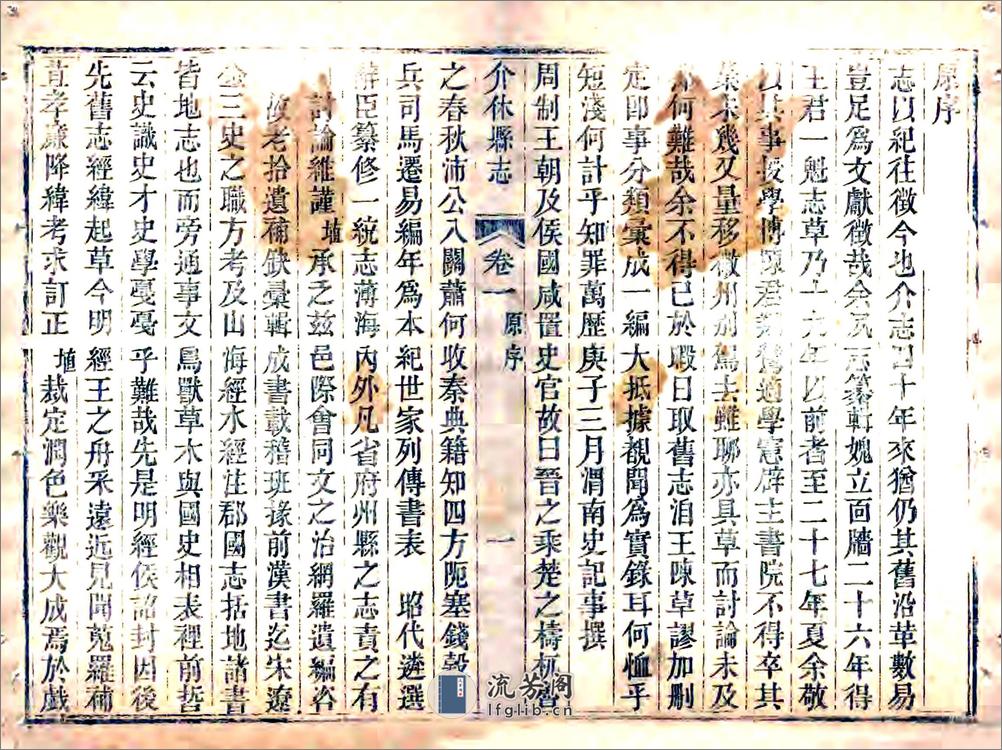 原序
志以紀往徵今也介志四十年來猶仍其舊沿革數易
豈足為文獻徵哉余尻志纂輯媿立面牆二十六年得
王君一魁志草乃十六年以前者至二十七年夏余敬
以其事授學博 君 適學憲辟主書院不得卒其
業未幾又量移徽州別駕去雖聊亦具草而討論未及
亦何難哉余不得已於暇日取舊志洎王陳草謬加刪
定即事分類彙成一編大抵據覩聞為實錄耳何恤乎
短淺何計乎知罪萬歷庚子三月渭南史記事撰
周制王朝及侯國咸置史官故曰晉之乘楚之檮杌魯
介休縣志 卷一 原序 一
之春秋沛公入關蕭何收秦典籍知四方阨塞錢穀
兵司馬遷易編年為本紀世家列傳書表 昭代遴選
辭臣纂修一統志薄海內外凡省府州縣之志責之有
討論維謹埴承乏茲邑際會同文之治網羅遺編咨
故老拾遺補缺彙輯成書載稽班掾前漢書迄宋遼
金三史之職方考及山海經水經注郡國志括地諸書
皆地志也而旁通事文鳥獸草木與國史相表裡前哲
云史識史才史學戛戛乎難哉先是明經侯詔封因後
先舊志經緯起草今明經王之舟釆遠近見聞蒐羅補
苴孝廉降緯考求訂正埴裁定潤色樂觀大成焉於戲
流芳閣
lfglib.cn